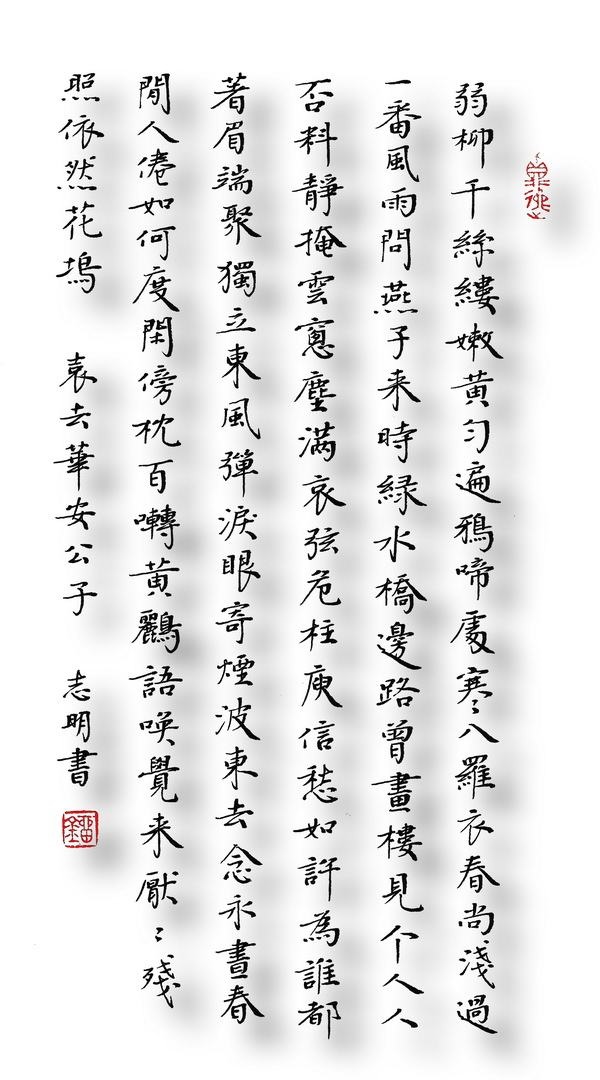 弱柳千絲縷嫩黃勻遍鴉啼處寒入羅衣春尚淺過
一番風雨問燕子来時緑水橋邊路曾畫樓見个人人
否料靜掩雲窓塵满哀弦危柱庾信愁如許為誰都
著眉端聚獨立東風彈淚眼寄煙波東去念永晝春
閒人倦如何度閑傍枕百囀黃鸝語喚覺来厭〻殘
照依然花塢 袁去華安公子 志明書